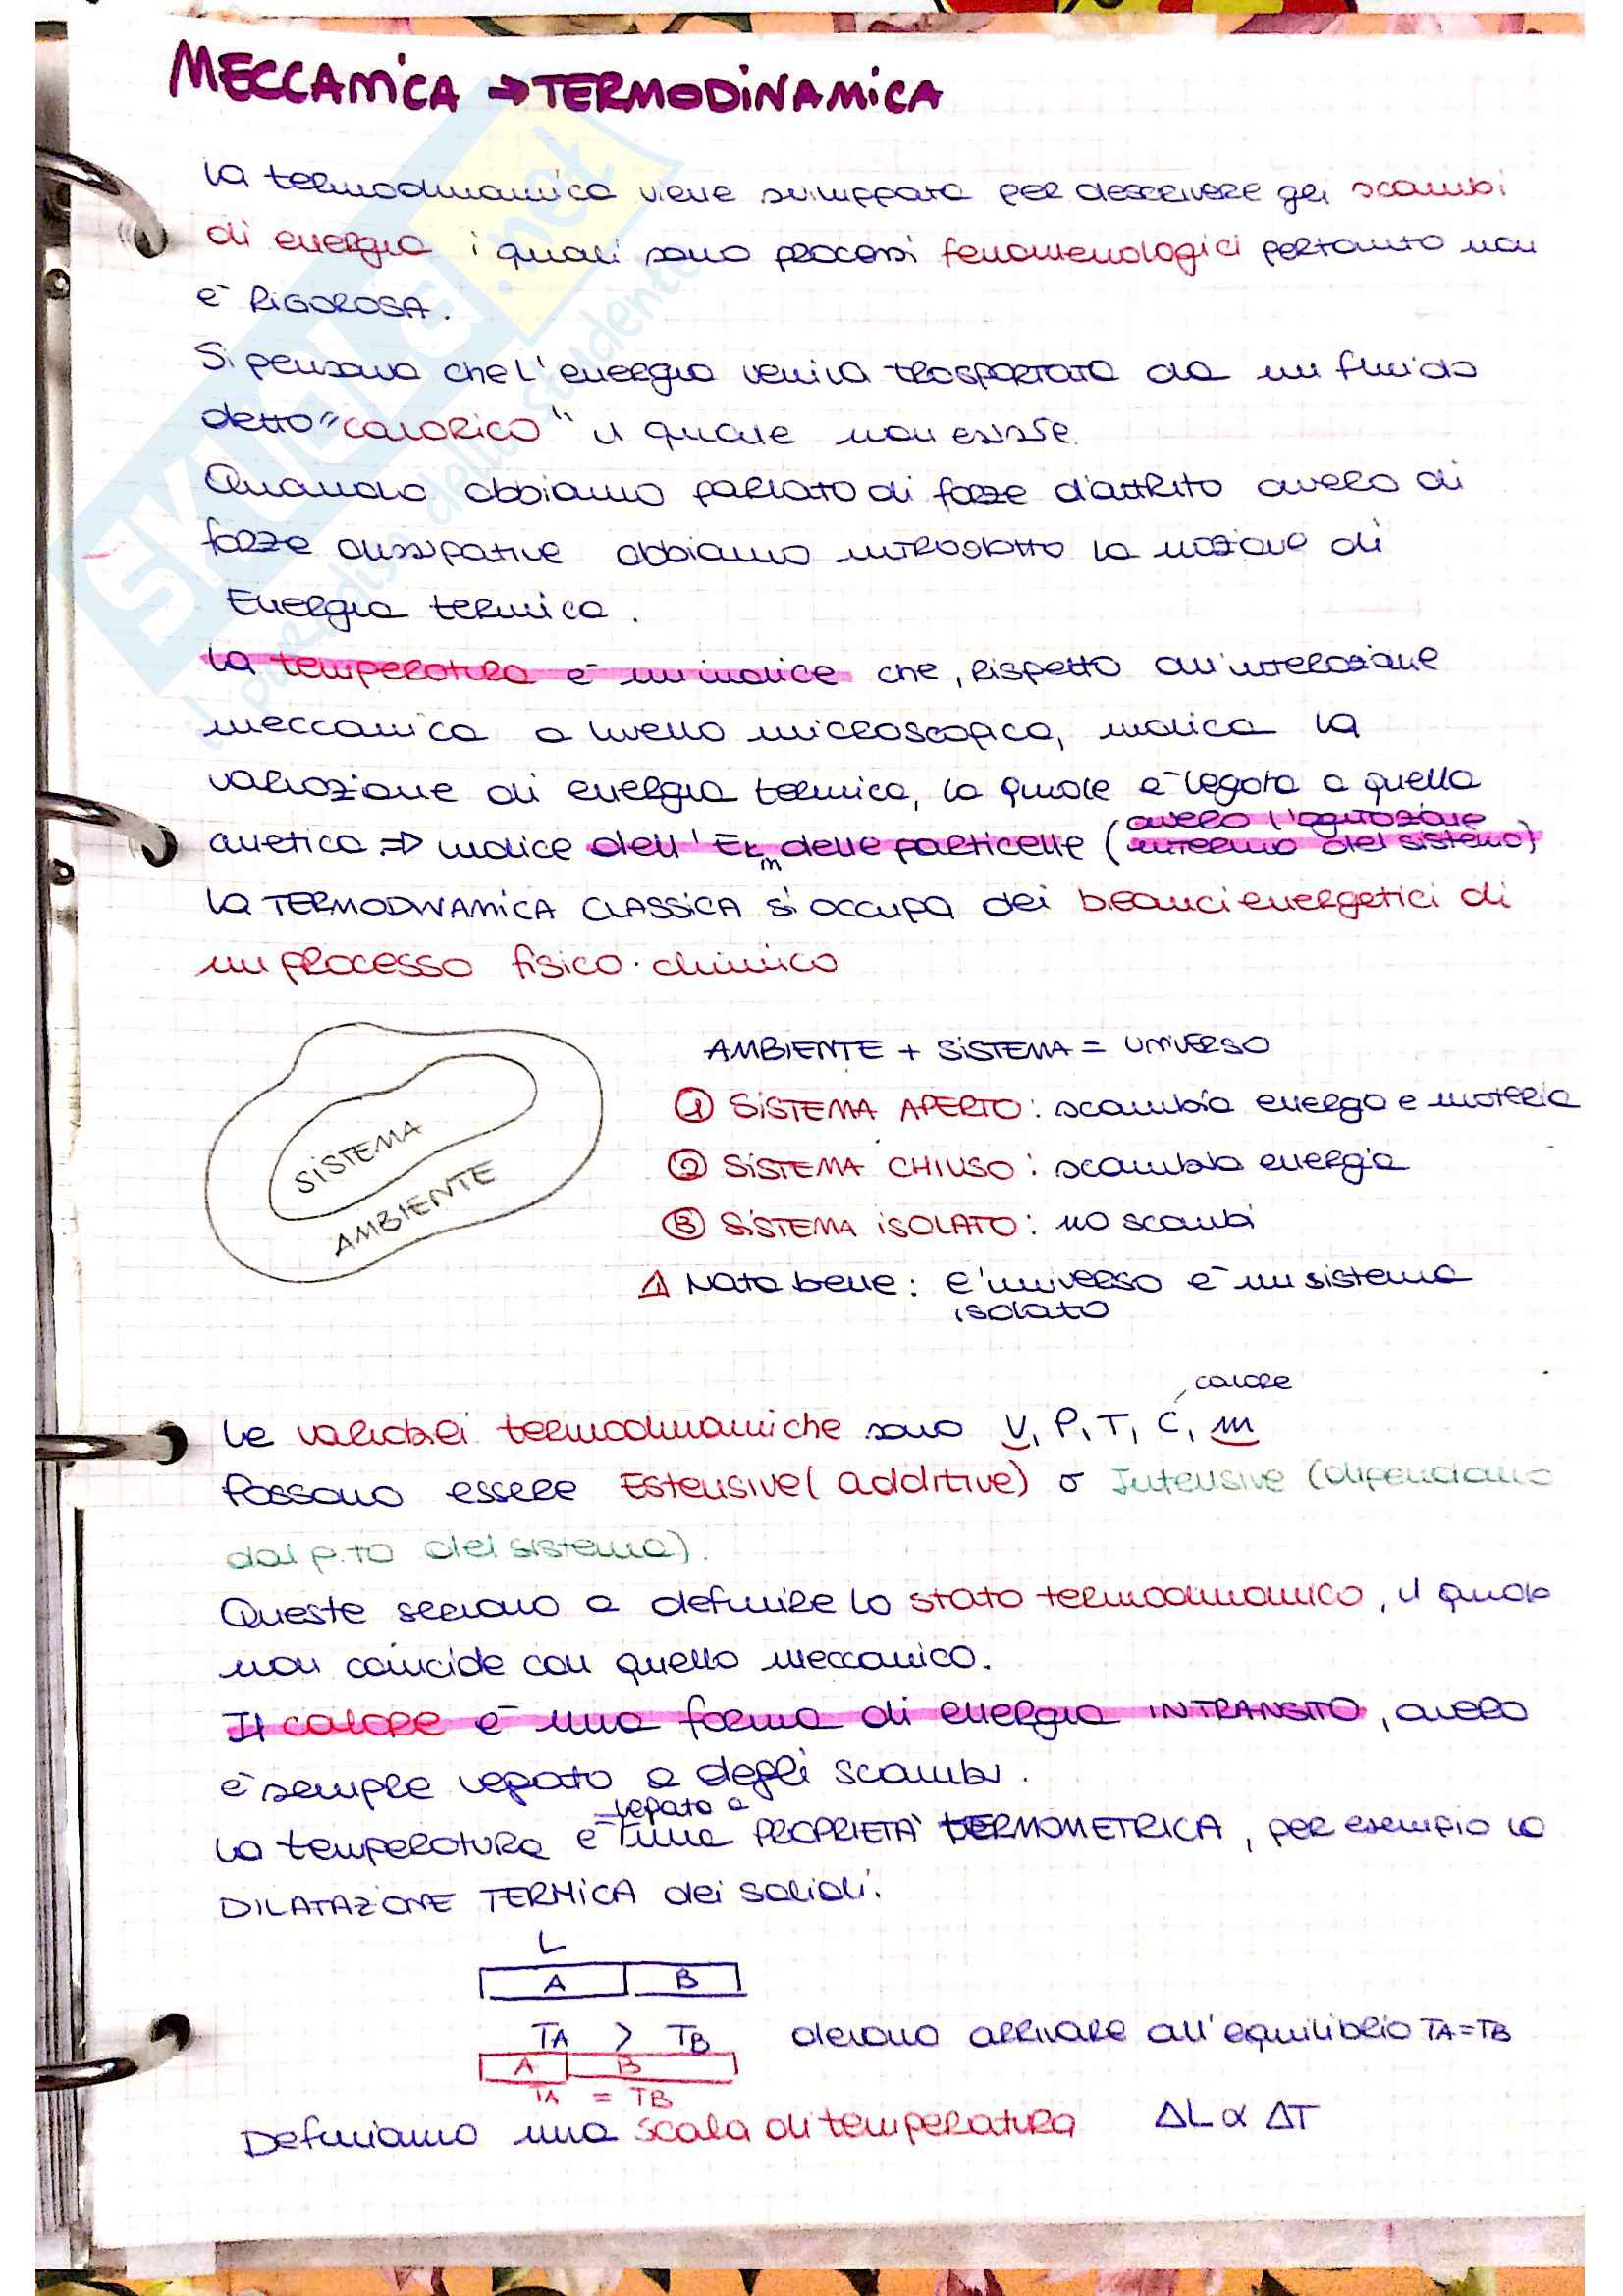 MECCANICA → TERMODINAMICA
La termodinamica viene sviluppata per descrivere gli scambi
di energia i quali sono processi fenomenologici pertanto non
è RIGOROSA.
Si pensava che l'energia veniva trasportata da un fluido
detto "calorico" il quale non esiste.
Quando abbiamo parlato di forze d'attrito ovvero di
forze dissipative abbiamo introdotto la nozione di
Energia termica.
La temperatura è un indice che, rispetto all'interazione
meccanica a livello microscopico, indica la
variazione di energia termica, la quale è legata a quella
cinetica ⇒ indice dell'Ekm delle particelle (ovvero l'agitazione
interna del sistema)
La TERMODINAMICA CLASSICA si occupa dei bilanci energetici di
un processo fisico-chimico
SISTEMA
AMBIENTE
AMBIENTE + SISTEMA = UNIVERSO
① SISTEMA APERTO: scambia energia e materia
② SISTEMA CHIUSO: scambia energia
③ SISTEMA ISOLATO: no scambi
⚠ Nota bene: l'universo è un sistema
isolato
calore
Le variabili termodinamiche sono V, P, T, C, m
Possono essere Estensive (additive) o Intensive (dipendono
dal p.to del sistema).
Queste servono a definire lo stato termodinamico, il quale
non coincide con quello meccanico.
Il calore è una forma di energia IN TRANSITO, ovvero
è sempre legato a degli scambi.
legata a
La temperatura è una PROPRIETÀ TERMOMETRICA, per esempio la
DILATAZIONE TERMICA dei solidi.
L
A B
TA > TB devono arrivare all'equilibrio TA=TB
A B
TA = TB
Definiamo una scala di temperatura ΔL ∝ ΔT
SKUOLA.net
il paradiso dello studente